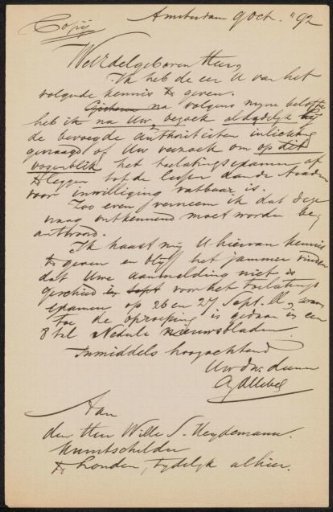 Copij
Amsterdam 9 Oct. '92
WelEdelgeboren Heer,
Ik heb de eer U van het
volgende kennis te geven.
Gisteren na volgens mijne belofte
heb ik na Uw bezoek dadelijk bij
de bevoegde Authoriteiten inlichting
gevraagd of Uw verzoek om op dit
oogenblik het toelatingsexamen af
te leggen tot de lessen der Academie
voor inwilliging vatbaar is.
Zoo even verneem ik dat deze
vraag ontkennend moet worden be-
antwoord.
Ik haast mij U hiervan kennis
te geven en blijf het jammer vinden
dat Uwe aanmelding niet is
geschied in Sept. voor het toelatings
examen op 26 en 27 Sept. ll. waar
toe de oproeping is gedaan in een
8 tal Nederl. nieuwsbladen.
Inmiddels hoogachtend
Uw dw. dienr
A Allebé
Aan
den Heer Wille S. Heydemann.
Kunstschilder
te Londen, tijdelijk alhier.